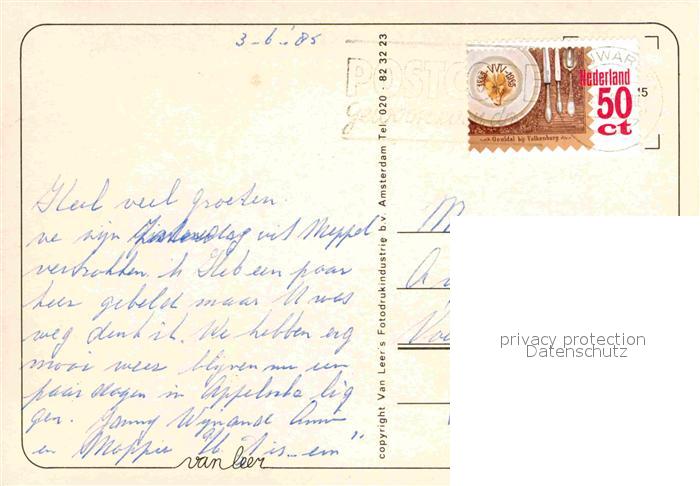 3-6-'85
POSTCODE
Nederland
50
ct
1885 VVV 1985
Geuldal bij Valkenburg
Heel veel groeten.
we zijn zaterdag uit Meppel
vertrokken. ik Heb een paar
keer gebeld maar U was
weg denk ik. We hebben erg
mooi weer blijven nu een
paar dagen in Appelscha lig
gen. Janny Wijnand Ann
en Moppie
copyright Van Leer's Fotodrukindustrie b.v. Amsterdam Tel. 020 - 82 32 23
van leer
privacy protection
Datenschutz